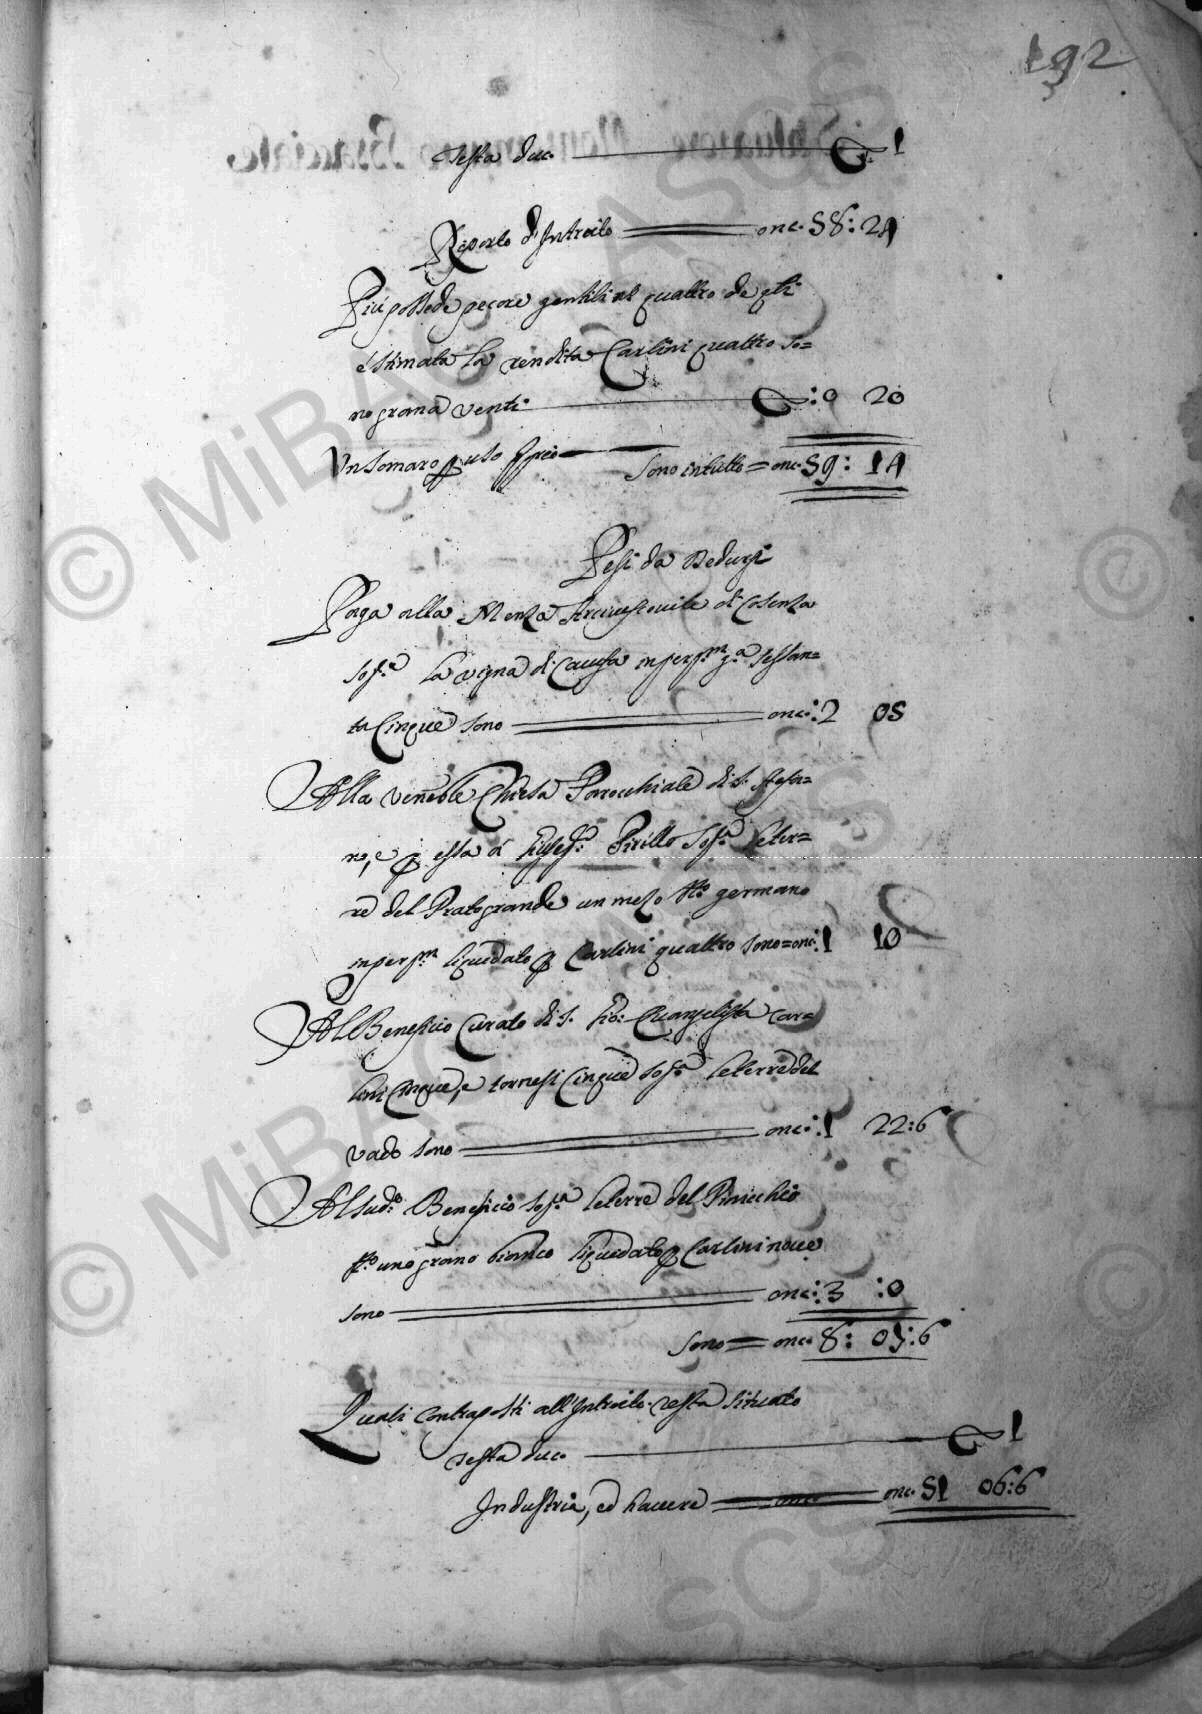 192
Testa duc. 1
Riporto d'Introito onc. 58: 24
Più possede pecore gentili n.4 quattro de q.li
è stimata la rendita Carlini quattro so=
no grana venti :0 20
Un somaro p uso pprio Sono in tutto = onc. 59: 14
Pesi da Dedursi
Paga alla Menza Arcivescovile di Cosenza
sop.a la vigna di in perp.m g.a sessan=
ta Cinque sono onc.: 2 05
Alla Ven.ble Chiesa Parrocchiale di S. Stefa=
no, e p essa à Giusep.e Pirillo sop.a le ter=
re del Pratogrande un mezo tt.o germano
in perp.m liquidato p Carlini quattro sono = onc.: 1 10
Al Beneficio Curato di S. Gio: Evangelista Car=
lini Cinque, e tornesi Cinque sop.a le terre del
vado sono onc.: 1 22:6
Al sud.o Beneficio sop.a le terre del Pinicchio
tt.o uno grano bianco liquidato p Carlini nove
sono onc.: 3 :0
Sono = onc. 8: 07:6
Quali contraposti all'Introito resta situato
Testa duc. 1
Industria, ed havere onc. 51 06:6
© MiBAC ASCS
© MiBAC ASCS ©
© MiBAC ASCS ©